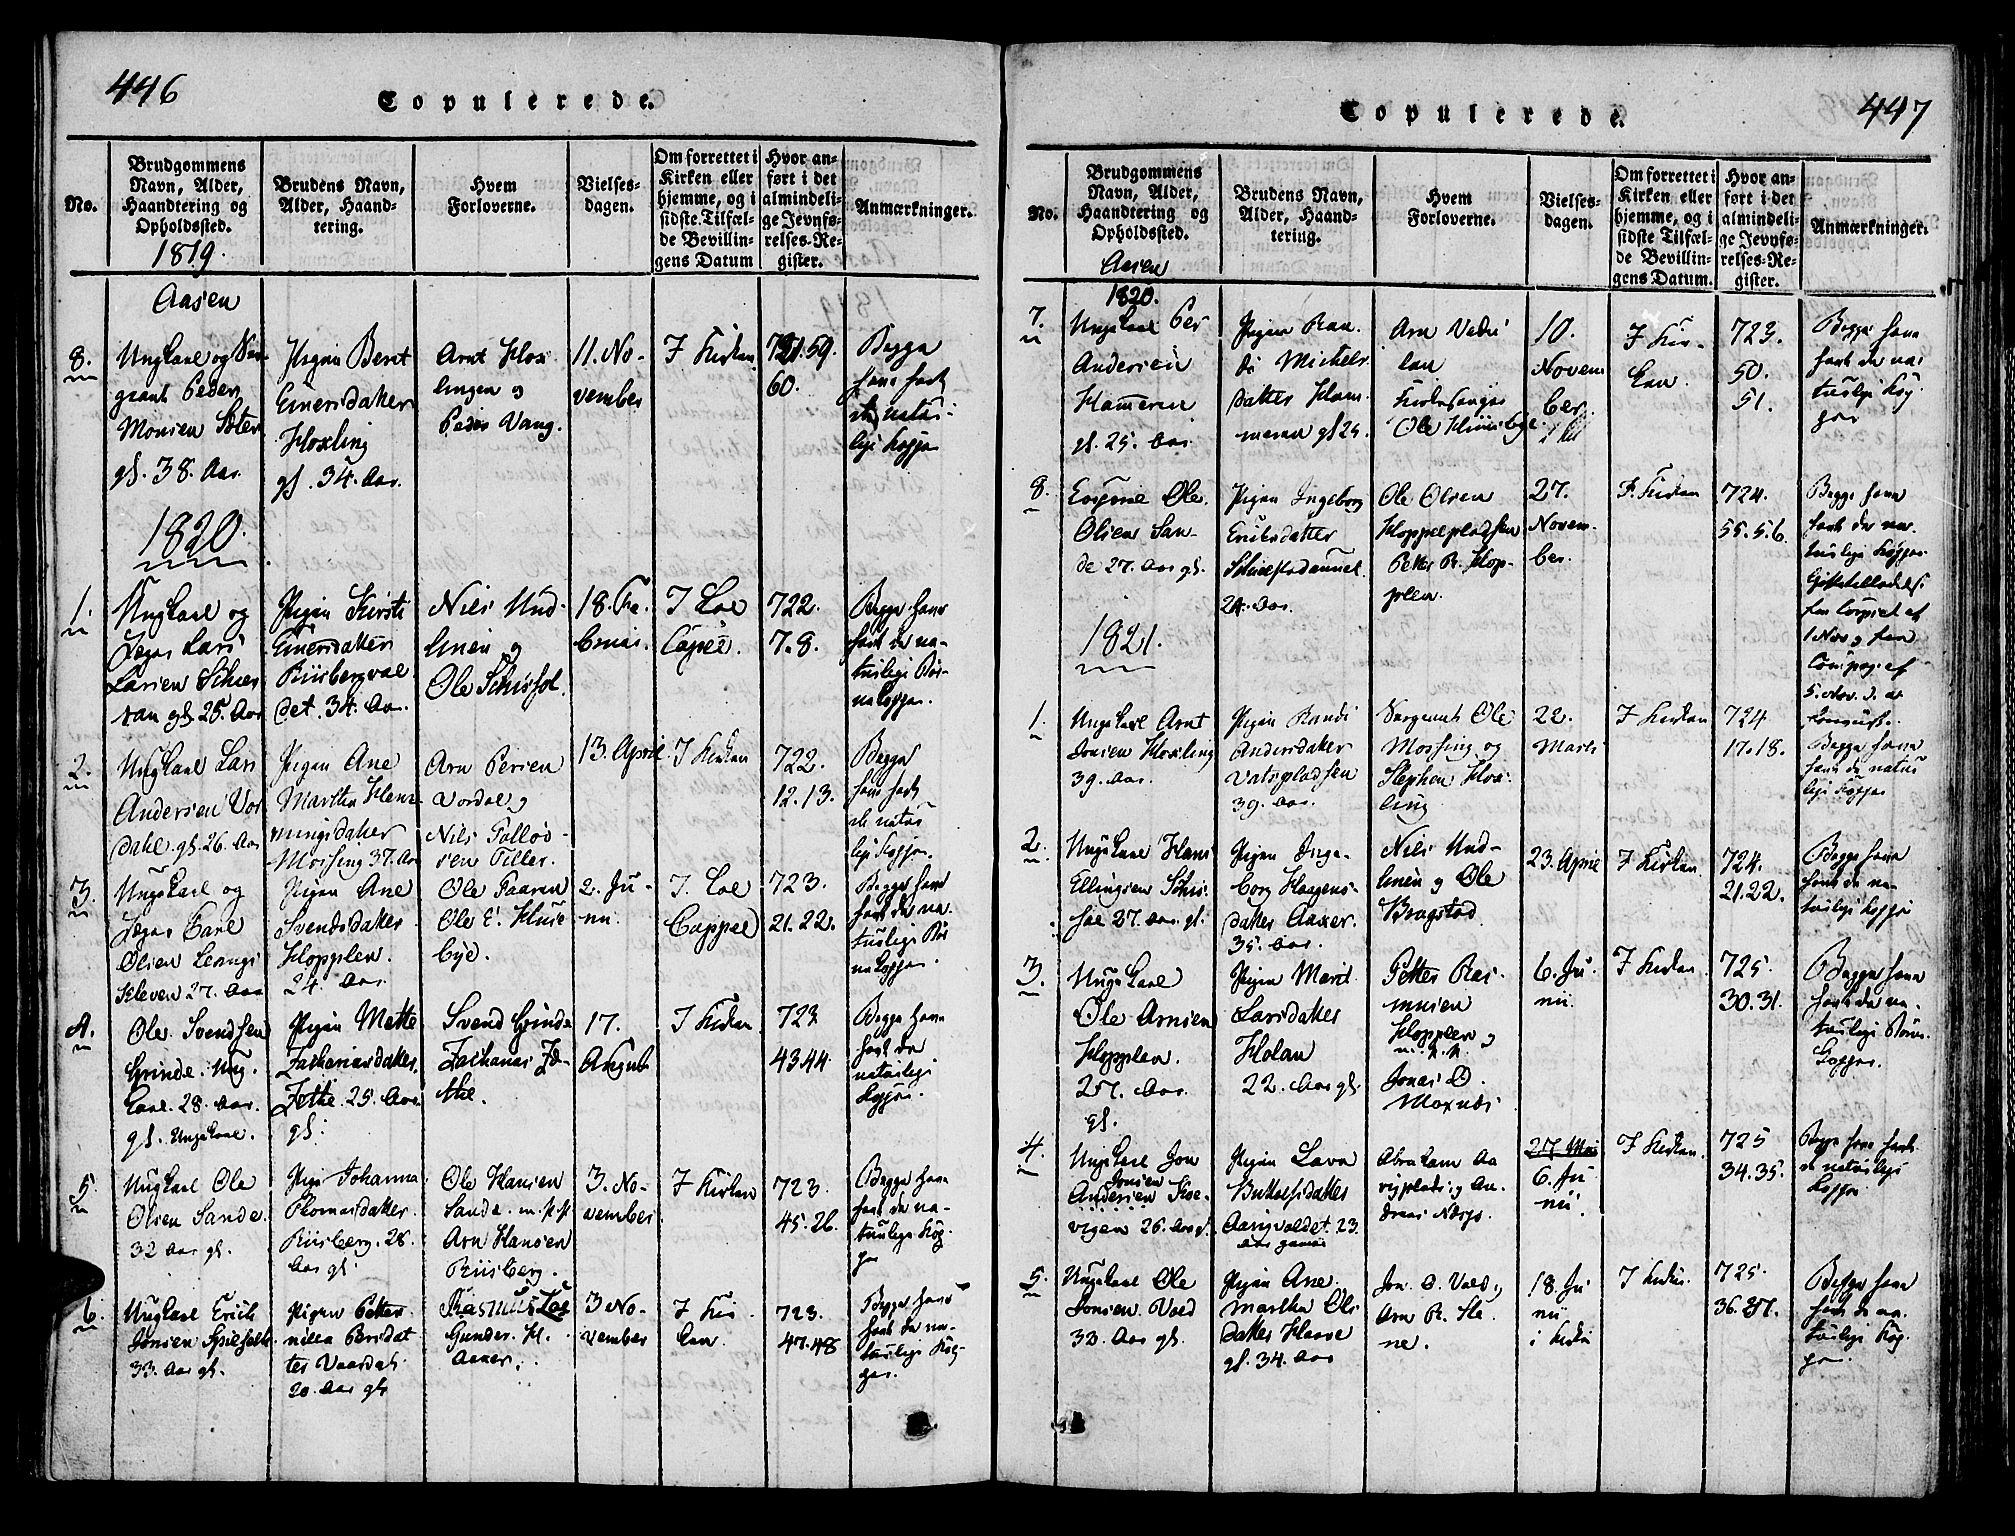 446
Copulerede.
No.
Brudgommens
Navn, Alder,
Haandtering og
Opholdssted.
1819.
Brudens Navn,
Alder, Haand-
tering.
Hvem
Forloverne.
Vielses-
dagen.
Om forrettet i
Kirken eller
hjemme, og i
sidste Tilfæl-
de Bevillin-
gens Datum
Hvor an-
ført i det
almindeli-
ge Jevnfø-
relses-Re-
gister.
Anmærkninger.
Aasen
8.
Ungkarl og
Peder
Monsen
gl. 38. Aar.
Pigen Beret
Einersdatter
Hoxling
gl. 34. Aar.
Arnt Hox
lingen og
Peder Vang.
11. No
vember
I Kirken
59.
60.
Begge
have havt
de natur
lige Kopper
1820.
1.
Ungkarl og
Jæger Lars
Larsen
gl. 25. Aar
Pigen Kirsti
Einersdatter
Riisbergval
det. 34. Aar.
Nils Und-
og
Ole
18. Fe
bruar
I Loe
Capel.
722.
7.8.
Begge have
havt de na-
turlige Bør-
nekopper.
2.
Ungkarl Lars
Andersen Vor
dahl. gl. 26. Aar
Pigen Ane
Martha Hem-
mingsdatter
Mossing 37. Aar
Arn Persen
Vordal og
Nils
Tiller.
13. April
I Kirken
722.
12.13.
Begge
have havt
de natur
lige Kopper.
3.
Ungkarl og
Jæger
Olsen
Kleven 27. Aar
Pigen Ane
Svendsdatter
Hopplen.
24. Aar
Ole
Ole E. Huse
bye.
2. Ju-
nii.
I. Loe
Cappel
723.
21.22.
Begge have
havt de na-
turlige Bør
nekopper.
4.
Ole Svendsen
Grinde. Ung
karl. 28. Aar.
gl. Ungkarl.
Pigen Mette
Zachariasdatter
25. Aar
gl:
Svend Grinde
Zacharias
17.
August
I Kirken
723
43.44.
Begge have
havt de
naturlige
Kopper.
5.
Ungkarl Ole
Olsen Sande.
32 Aar gl.
Pige Johanna
Thomasdatter
Riisberg. 28.
Aar gl.
Ole Hansen
Sande. m.p.p
Arn Hansen
Riisberg.
3. No-
vember
I Kirken
723.
45.26.
Begge have
havt de na-
turlige Kop-
per
6.
Ungkarl Erich
Jonsen
33. Aar gl.
Pigen Petter
nilla Persdat
ter Vaardal
20. Aar gl
Rasmus Loe
Gunder H.
Aaner.
3 No-
vember
I Kir
ken
723.
47.48
Begge have
havt de na-
turlige Kop-
per.
447
Copulerede.
No.
Brudgommens
Navn, Alder,
Haandtering og
Opholdssted.
Aasen
1820.
Brudens Navn,
Alder, Haand-
tering.
Hvem
Forloverne.
Vielses-
dagen.
Om forrettet i
Kirken eller
hjemme, og i
sidste Tilfæl-
de Bevillin-
gens Datum.
Hvor an-
ført i det
almindeli-
ge Jevnfø-
relses-Re-
gister.
Anmærkninger.
7.
Ungkarl Per
Andersen
Hameren
gl. 25. Aar.
Pigen Ran
di Michels
datter Ham
meren gl 25.
Arn
Kirkesanger
Ole Huusbye.
10.
Novem
ber
I Kir-
ken.
723.
50.
51.
Begge have
havt de na
turlige Kop
per
8.
Ole
Olsen San-
de 27. Aar gl.
Pigen Ingeborg
Erichsdatter
24. Aar.
Ole Olsen
Hoppelpladsen
Petter R. Hop-
plen.
27.
Novem-
ber.
I. Kirken
724.
55.56.
Begge have
havt de na-
turlige Kopper
fra Corpset af
1 Nov og fra
Compag: af
5. Nov.
1821.
1.
Ungkarl Arnt
Jonsen Hoxling
39. Aar.
Pigen Randi
Andersdatter
39. Aar.
Sergeant Ole
Mossing og
Stephen Hox-
ling
22.
Marts
I Kirken
724
17.18.
Begge have
havt de natur
lige Kopper
2.
Ungkarl Hans
Ellingsen
27. Aar gl.
Pigen Inge-
borg Haagens-
datter Aaxner.
35. Aar.
Nils Und-
og Ole
Bragstad
23. April
I Kirken.
724.
21.22.
Begge have
havt de na-
turlige Kopper
3.
Ungkarl
Ole Arnsen
Hopplen.
25. Aar.
gl.
Pigen Marit
Larsdatter
Holan
22. Aar gl.
Petter Ras-
musen
Hopplen og
Jonas O.
Moxnes
6. Ju-
nii
I Kirken
725.
30.31.
Begge have
havt de na-
turlige Børne
kopper.
4.
Ungkarl Jon
Jonsen
Andersen Koe-
vigen 26. Aar gl.
Pigen Lava
Buttolfsdatter
Aasvaldet. 23.
Aar gamel
Abraham Aa
og An-
dreas
27 Mai
6. Ju
nii.
I Kirken.
725
34.35.
Begge have havt
de naturlige
Kopper
5.
Ungkarl Ole
Jonsen Vold
33. Aar gl.
Pigen Ane
Martha Ols
datter Haave
gl. 34. Aar
Jon O. Vold og
Arn R. Ste
ne.
18. Ju
nii
i Kirken
I Kirken.
725.
36.37.
Begge have
havt de na-
turlige Kop
per.